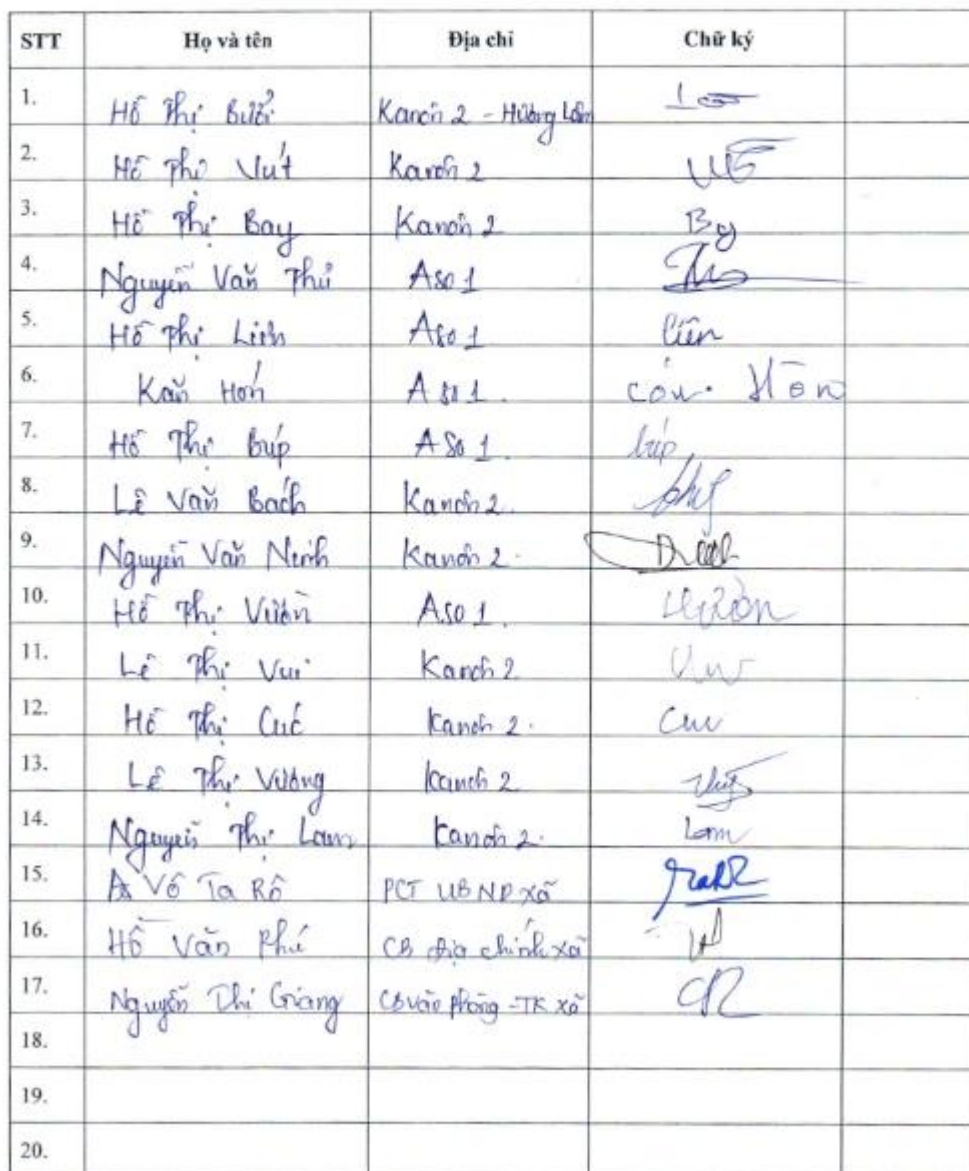 STT Họ và tên Địa chỉ Chữ ký
1. Hồ Thị Bưởi Kanôn 2 - Hương Lâm
2. Hồ Thị Vút Kanôn 2
3. Hồ Thị Bay Kanôn 2 Bay
4. Nguyễn Văn Thủ Aso 1
5. Hồ Thị Liên Aso 1 liên
6. Kăn Hón A so 1. Hôn
7. Hồ Thị Búp A so 1. búp
8. Lê Văn Bách Kanôn 2.
9. Nguyễn Văn Ninh Kanôn 2.
10. Hồ Thị Vườn Aso 1.
11. Lê Thị Vui Kanôn 2
12. Hồ Thị Cúc Kanôn 2.
13. Lê Thị Vương Kanôn 2
14. Nguyễn Thị Lam Kanôn 2. Lam
15. A Vô Ta Rô PCT UBND xã
16. Hồ Văn Phú CB địa chính xã
17. Nguyễn Thị Giang CB văn phòng - TK xã
18.
19.
20.